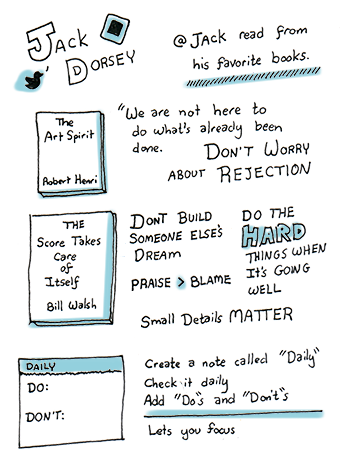 Jack
Dorsey
@Jack read from
his favorite books.
The
Art Spirit
Robert Henri
"We are not here to
do what's already been
done.
Don't Worry
about Rejection
THE
Score Takes
Care
of
Itself
Bill Walsh
Dont Build
Someone Else's
Dream
Praise > Blame
Do the
HARD
things when
It's going
well
Small Details MATTER
DAILY
DO:
DON'T:
Create a note called "Daily"
Check it daily
Add "Do"s and "Don't"s
Lets you focus